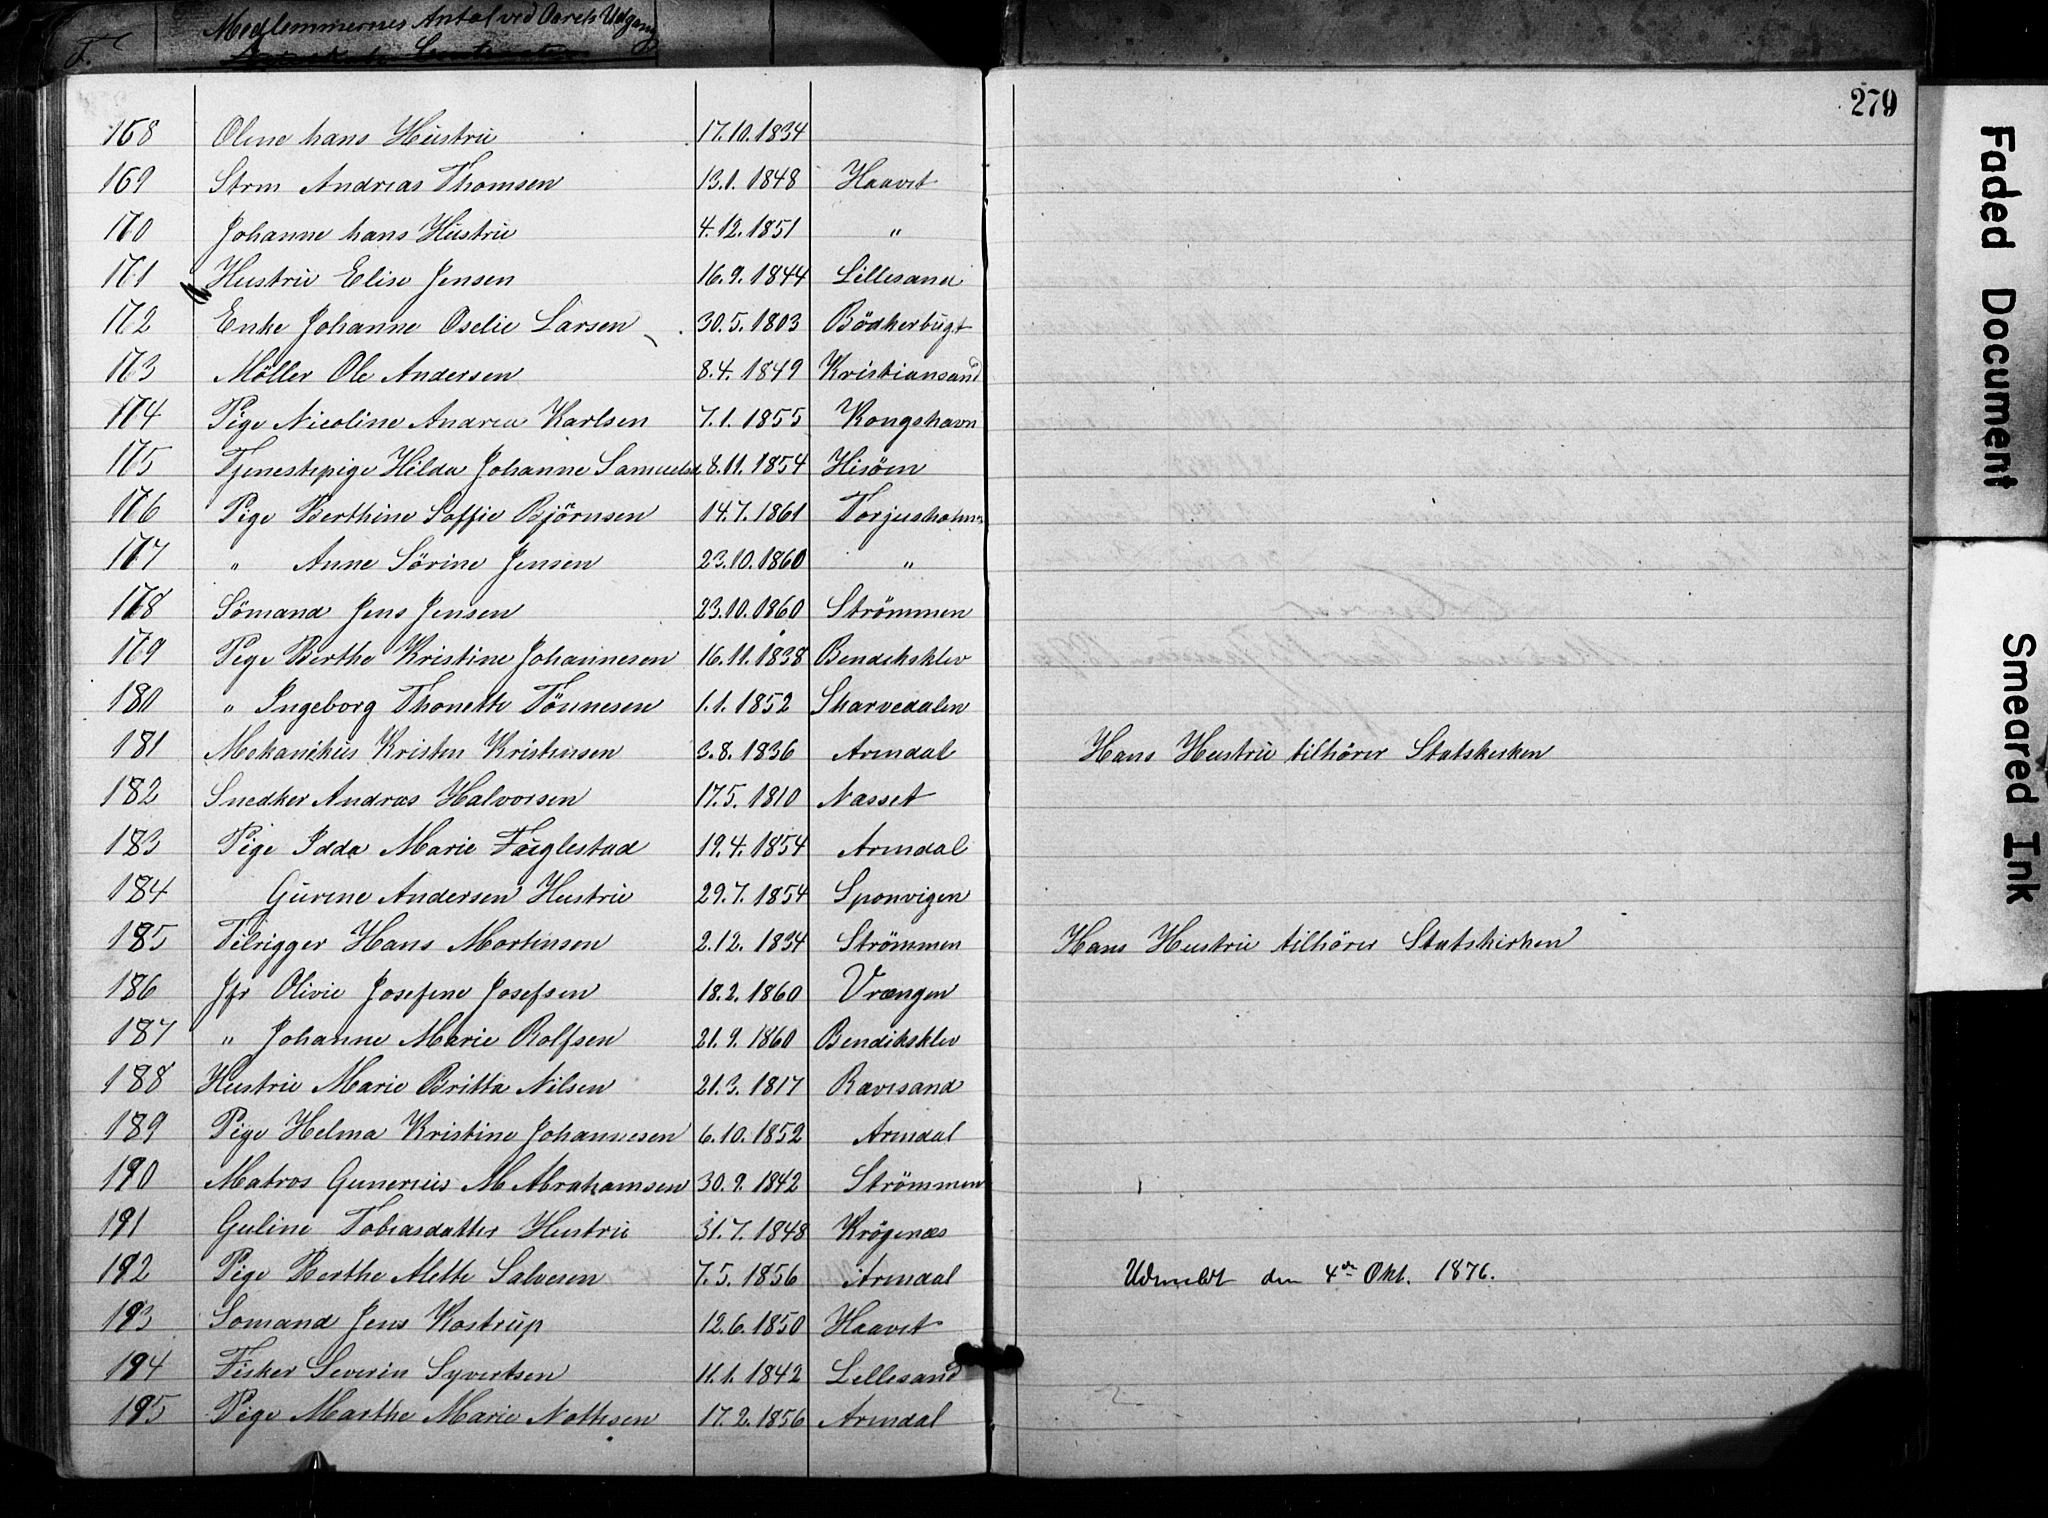 Medlemmernes Antal ved Aarets Udgang
279
168 Oline hans Hustru 17.10.1834
169 Strm Andreas Thomsen 13.1.1848 Haavet
170 Johanne hans Hustru 4.12.1851 "
171 Hustru Elise Jensen 16.9.1844 Lillesand
172 Enke Johanne Oselie Larsen 30.5.1803 Bödkerbugt
173 Möller Ole Andersen 8.4.1849 Kristiansand
174 Pige Nicoline Andrea Karlsen 7.1.1855 Kongshavn
175 Tjenestepige Hilda Johanne Samuelsd 8.11.1854 Hisöen
176 Pige Berthine Soffie Björnsen 14.7.1861 Torjusholmen
177 " Anne Sörine Jensen 23.10.1860 "
178 Sömand Jens Jensen 23.10.1860 Strömmen
179 Pige Berthe Kristine Johannesen 16.11.1838 Bendiksklev
180 " Ingeborg Thonette Tönnesen 1.1.1852 Skarvedalen
181 Mekanikus Kristen Kristensen 3.8.1836 Arendal Hans Hustru tilhörer Statskirken
182 Snedker Andras Halvorsen 17.5.1810 Nasset
183 Pige Idda Marie Fuglestad 19.4.1854 Arendal
184 Gurine Andersen Hustru 29.7.1854 Sponvigen
185 Tilrigger Hans Mortensen 2.12.1834 Strömmen Hans Hustru tilhörer Statskirken
186 Jfr Olivie Josefine Josefsen 18.2.1860 Vrængen
187 " Johanne Marie Rolfsen 21.9.1860 Bendiksklev
188 Hustru Marie Britta Nilsen 21.3.1817 Ravesand
189 Pige Helma Kristine Johannesen 6.10.1852 Arendal
190 Matros Gunerius M Abrahamsen 30.9.1842 Strömmen
191 Guline Tobiasdatter Hustru 31.7.1848 Krögenæs
192 Pige Berthe Alette Salvesen 7.5.1856 Arendal Udmeldt den 4de Okt. 1876.
193 Somand Jens Kostrup 12.6.1850 Haavet
194 Fisker Severin Syvertsen 11.1.1842 Lillesand
195 Pige Marthe Marie Nottesen 17.2.1856 Arendal
Faded Document
Smeared Ink